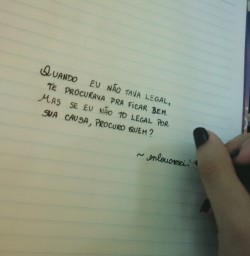 QUANDO EU NÃO TAVA LEGAL,
TE PROCURAVA PRA FICAR BEM.
MAS SE EU NÃO TÔ LEGAL POR
SUA CAUSA, PROCURO QUEM?